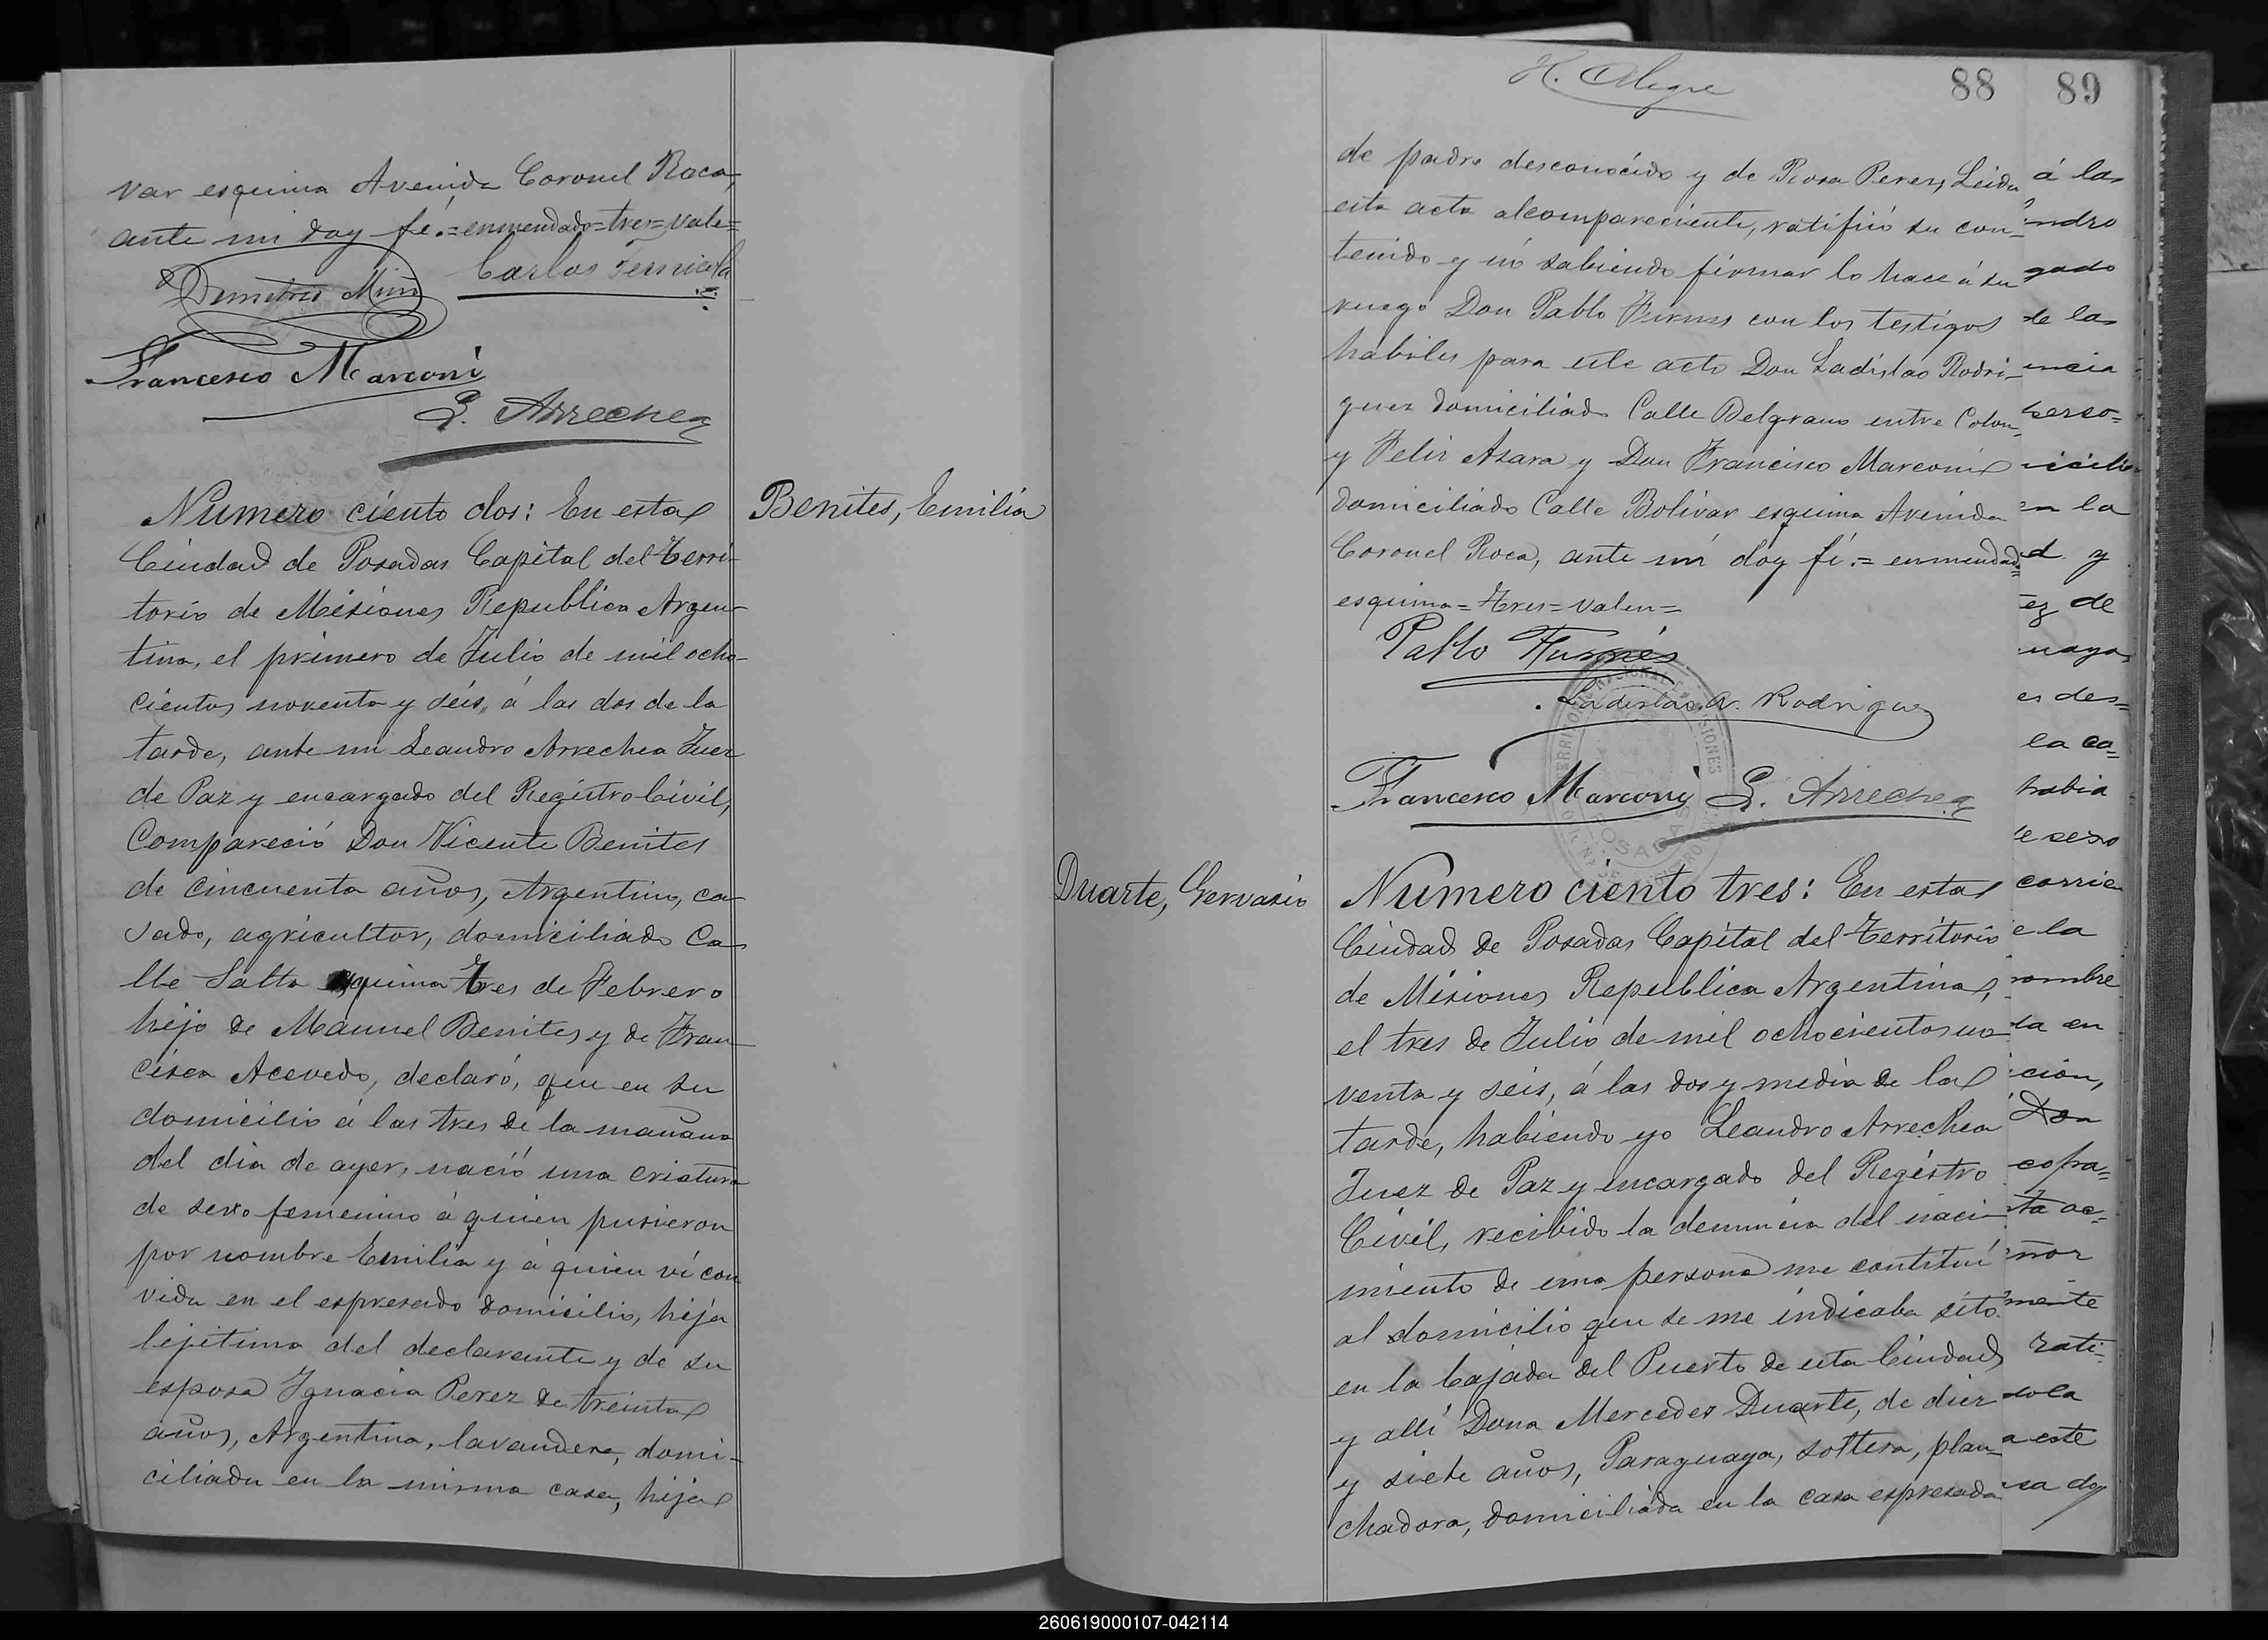 var esquina Avenida Coronel Roca,
ante mi doy fé.=enmendado=tres=vale=
Demetrio Carlos
Francesco Marconi
L. Arrechea
Numero ciento dos: En esta
Benites, Emilia
Ciudad de Posadas Capital del Terri-
torio de Misiones Republica Argen-
tina, el primero de Julio de mil ocho-
cientos noventa y séis, á las dos de la
tarde, ante mi Leandro Arrechea Juez
de Paz y encargado del Registro Civil,
Compareció Don Vicente Benites
de cincuenta años, Argentino, ca-
sado, agricultor, domiciliado Ca-
lle Salta esquina Tres de Febrero
hijo de Manuel Benites y de Fran-
cisca Acevedo, declaró, que en su
domicilio á las tres de la mañana
del dia de ayer, nació una criatura
de sexo femenino á quien pusieron
por nombre Emilia y á quien ví con
vida en el espresado domicilio, hija
lejitima del declarante y de su
esposa Ignacia Perez de treinta
años, Argentina, lavandera, domi-
ciliada en la misma casa, hija
H. Alegre
88
de padre desconocido y de Rosa Perez, Leida
esta acta al compareciente, ratificó su con-
tenido y nó sabiendo firmar lo hace á su
ruego Don Pablo Funes con los testigos
habiles para este acto Don Ladislao Rodri-
guez domiciliado Calle Belgrano entre Colon
y Felix Azara y Don Francisco Marconi
domiciliado Calle Bolivar esquina Avenida
Coronel Roca, ante mí doy fé.=enmendado=
esquina=Tres=valen=
Pablo Funes
Ladislao A. Rodriguez
Francesco Marconi L. Arrechea
POSADAS
Duarte, Gervasio
Numero ciento tres: En esta
Ciudad de Posadas Capital del Territorio
de Misiones Republica Argentina,
el tres de Julio de mil ochocientos no
venta y seis, á las dos y media de la
tarde, habiendo yo Leandro Arrechea
Juez de Paz y encargado del Registro
Civil, recibido la denuncia del naci-
miento de una persona me contituí
al domicilio que se me indicaba sito
en la bajada del Puerto de esta Ciudad
y allí Dona Mercedes Duarte, de diez
y siete años, Paraguaya, soltera, plan-
chadora, domiciliada en la casa espresada
89
á las
ndro
gado
de la
encia
perso=
icilio
en la
d. y
ez de
uaya,
es des=
la ca=
habia
e sexo
corrien
e la
nombre
ta en
icion,
Don
copa=
ta ac=
eñor
mente
rati=
sola
a este
sa doy
260619000107-042114